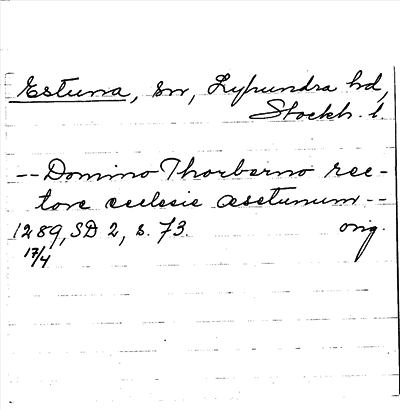 Estuna, sn, Lyhundra hd,
Stockh. l.
--Domino Thorberno rec-
tore ecclesie æstunum--
1289, SD 2, s. 73. orig.
17/4